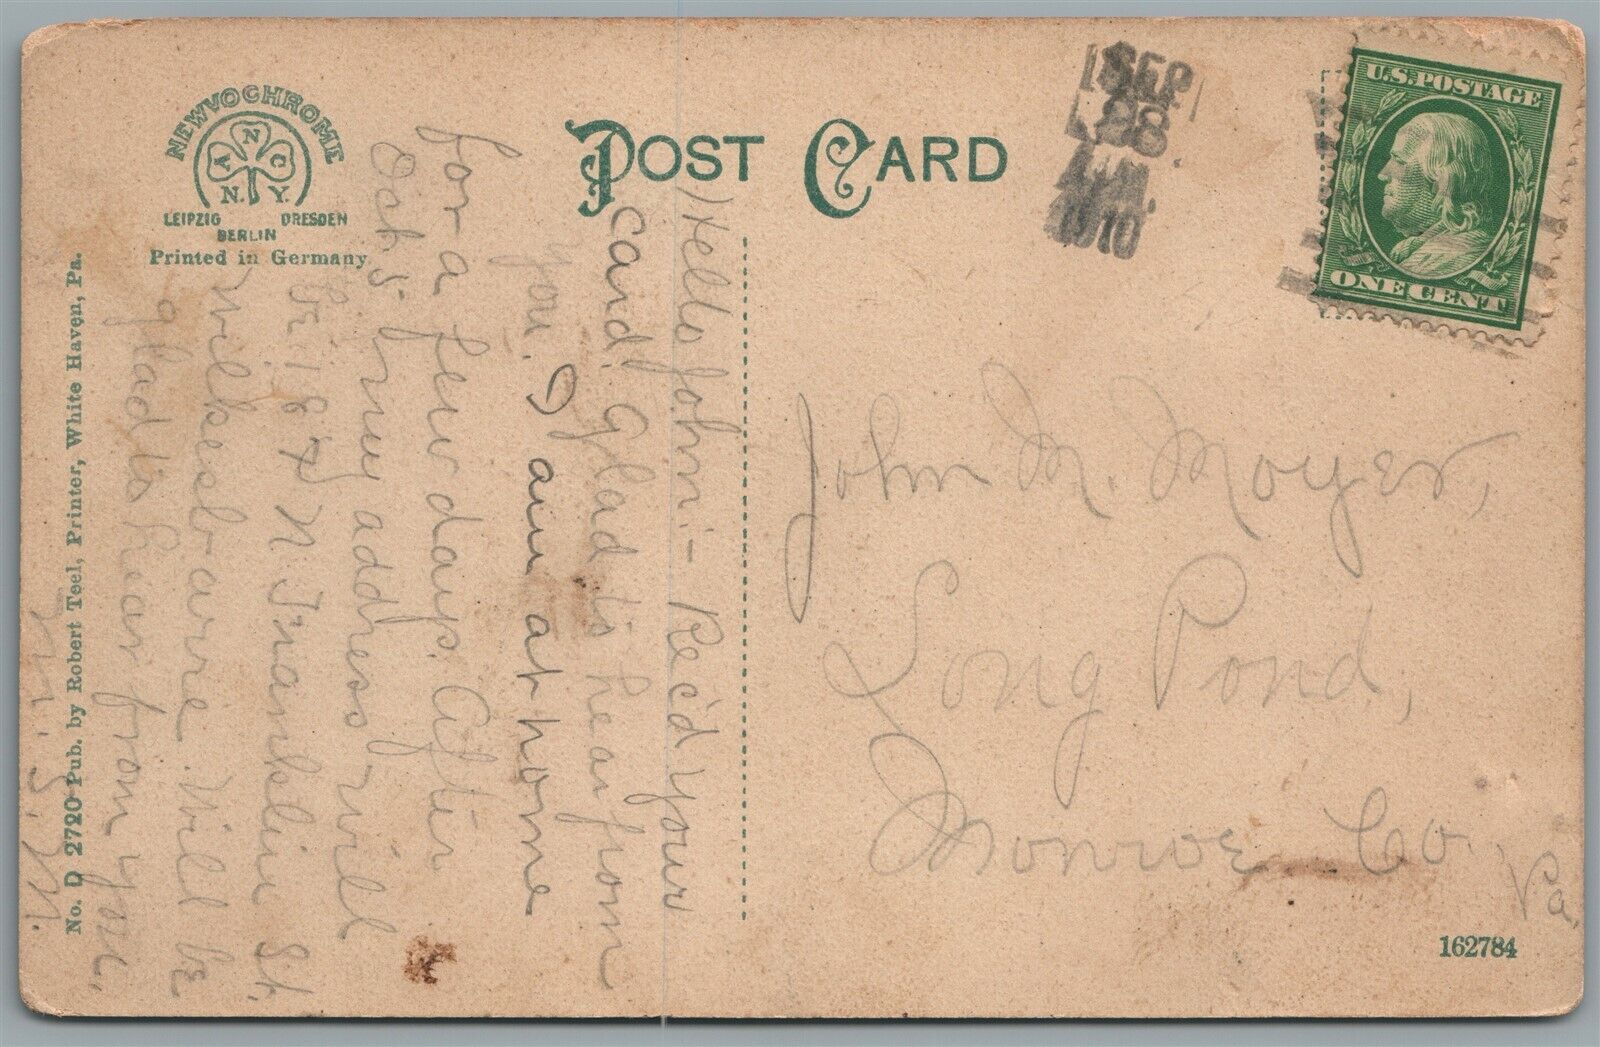 NEWVOCHROME
A N C
N. Y.
LEIPZIG DRESDEN
BERLIN
Printed in Germany
POST CARD
SEP
28
A.M.
1910
U.S. POSTAGE
ONE CENT
Hello John:- Rec'd your
card. Glad to hear from
you. I am at home
for a few days. After
Oct 5- my address will
be 187 N. Franklin St.
Wilkesb-arre. Will be
glad to hear from you.
John M. Moyer,
Long Pond,
Monroe Co.
Pa.
No. D 2720 Pub. by Robert Teel, Printer, White Haven, Pa.
162784